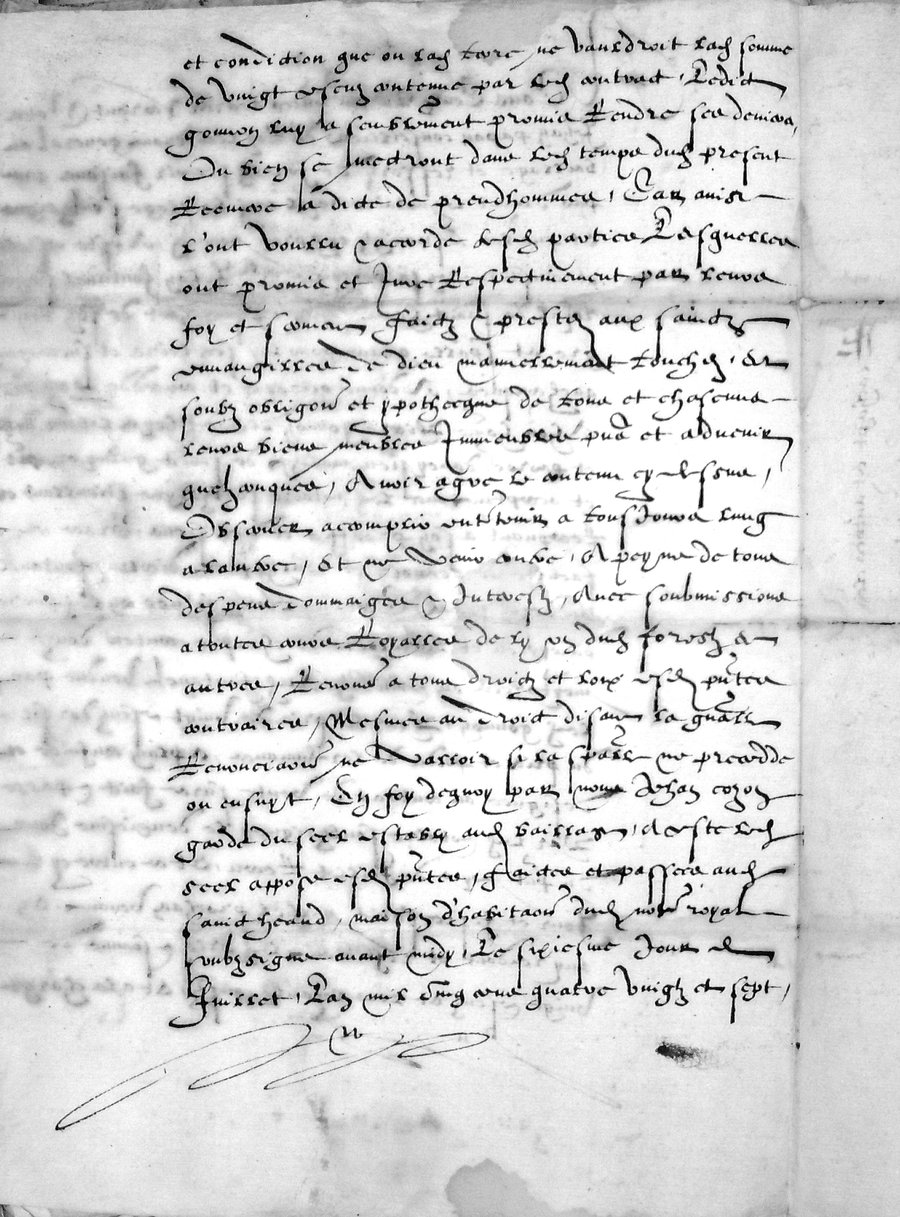 et condition que ou lad terre ne vauldroit lad somme
de vingt escuz contenue par led contract, Ledict
gonon luy a semblement promis Rendre ses deniers,
Ou bien se mectront dans led temps dud present
a dicte de preudhommes, Car ainsi
l'ont voullu & accorde lesd parties Lesquelles
ont promis et Jure Respectivement par leurs
foy et serment faictz & prestez aux sainctz
evangilles de dieu manuellement touchez, et
soubz obligaon et ypothecque de tous et chascuns
leurs biens meubles Immeubles pns et advenir
quelzconques, Avoir agre le contenu cy dessus,
Observer accomplir entretenir a tousJours lung
a laultre, Et ne venir contre, A peyne de tous
despens dommaiges & Interestz, Avec soubmissions
a toutes cours Royalles de dud forestz et
aultres, Renonc a tous droictz et loix esd pntes
contraires, Mesmes au droict disant la gnalle
Renonciaon ne valloir si la spalle ne precedde
ou ensuyt, En foy dequoy par nous Jehan
garde du seel estably aud bailliage, A este led
seel appose esd pntes, faictes et passees aud
sainct heand, maison d'habitaon dud notre royal
soubzsigne avant midy, Le sixiesme Jour de
Juillet, Lan mil cinq cens quatre vingtz et sept,